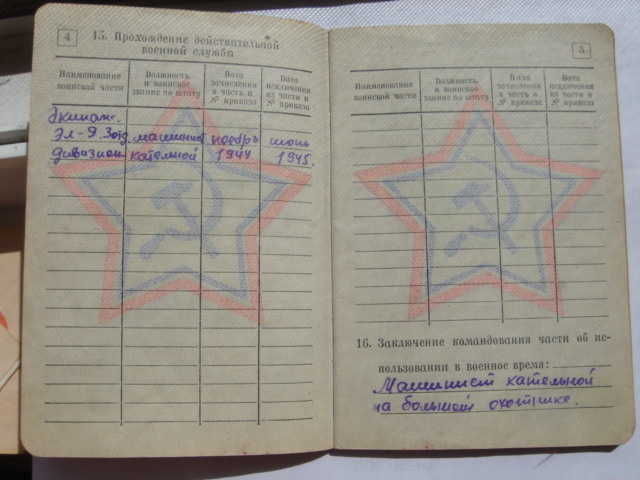 4
15. Прохождение действительной
военной службы
Наименование
воинской части
Должность
и воинское
звание по штату
Дата
зачисления
в часть и
№ приказа
Дата
исключения
из части и
№ приказа
Эл-9.
дивизион
машинист
кательной
ноябрь
1944
июнь
1945.
5
Наименование
воинской части
Должность
и воинское
звание по штату
Дата
зачисления
в часть и
№ приказа
Дата
исключения
из части и
№ приказа
16. Заключение командования части об ис-
пользовании в военное время:
Машинист кательной
на большом охотнике.